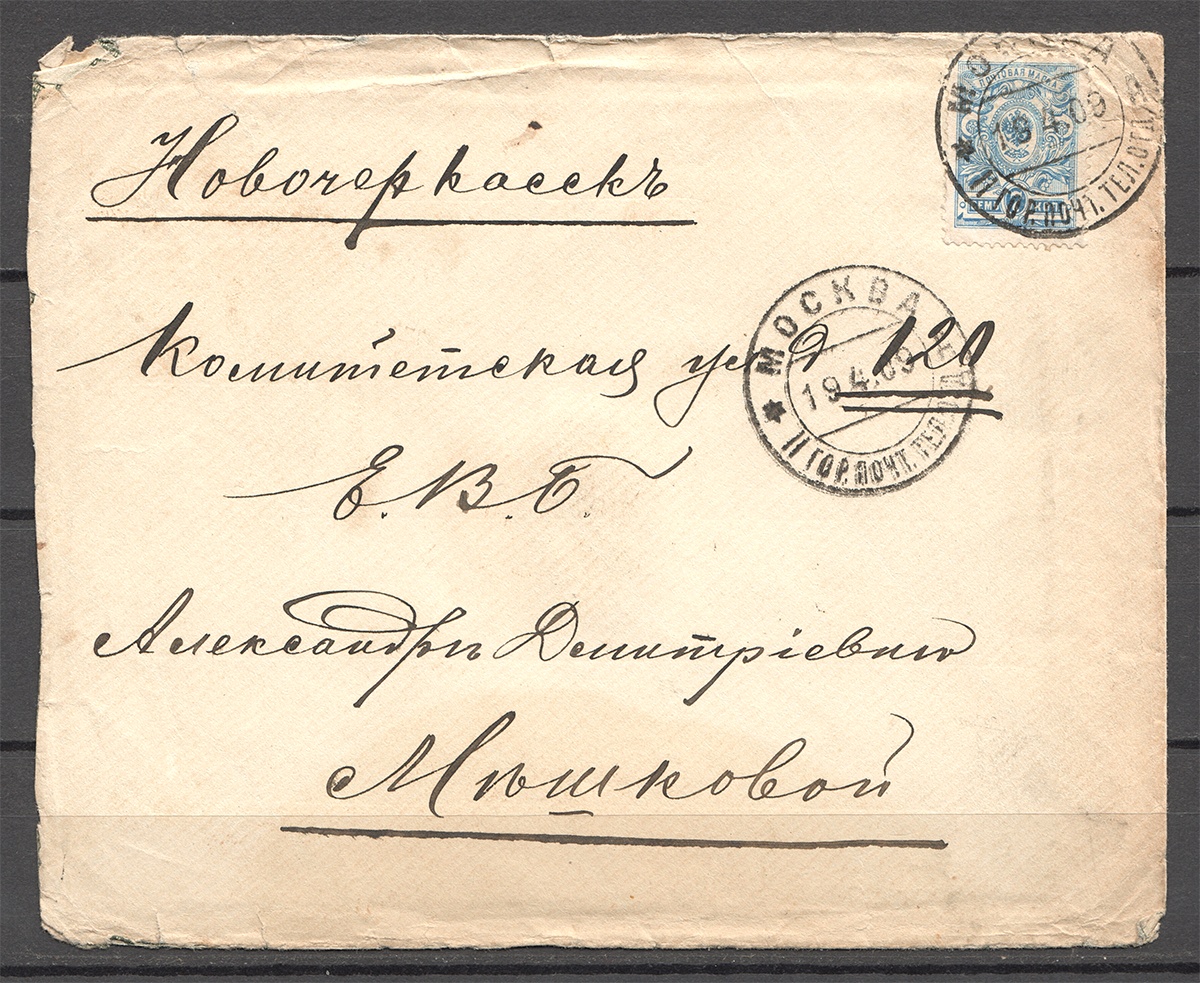 Новочеркасскъ
Комитетская ул д 120
Е. В. Б.
Александръ Дмитріевни
Мѣшковой
МОСКВА
19 4.09
II ГОР. ПОЧТ. ТЕЛ. ОТД.
ПОЧТОВАЯ МАРКА
СЕМЬ КОП
МОСКВА
19 4.09
II ГОР. ПОЧТ. ТЕЛ.